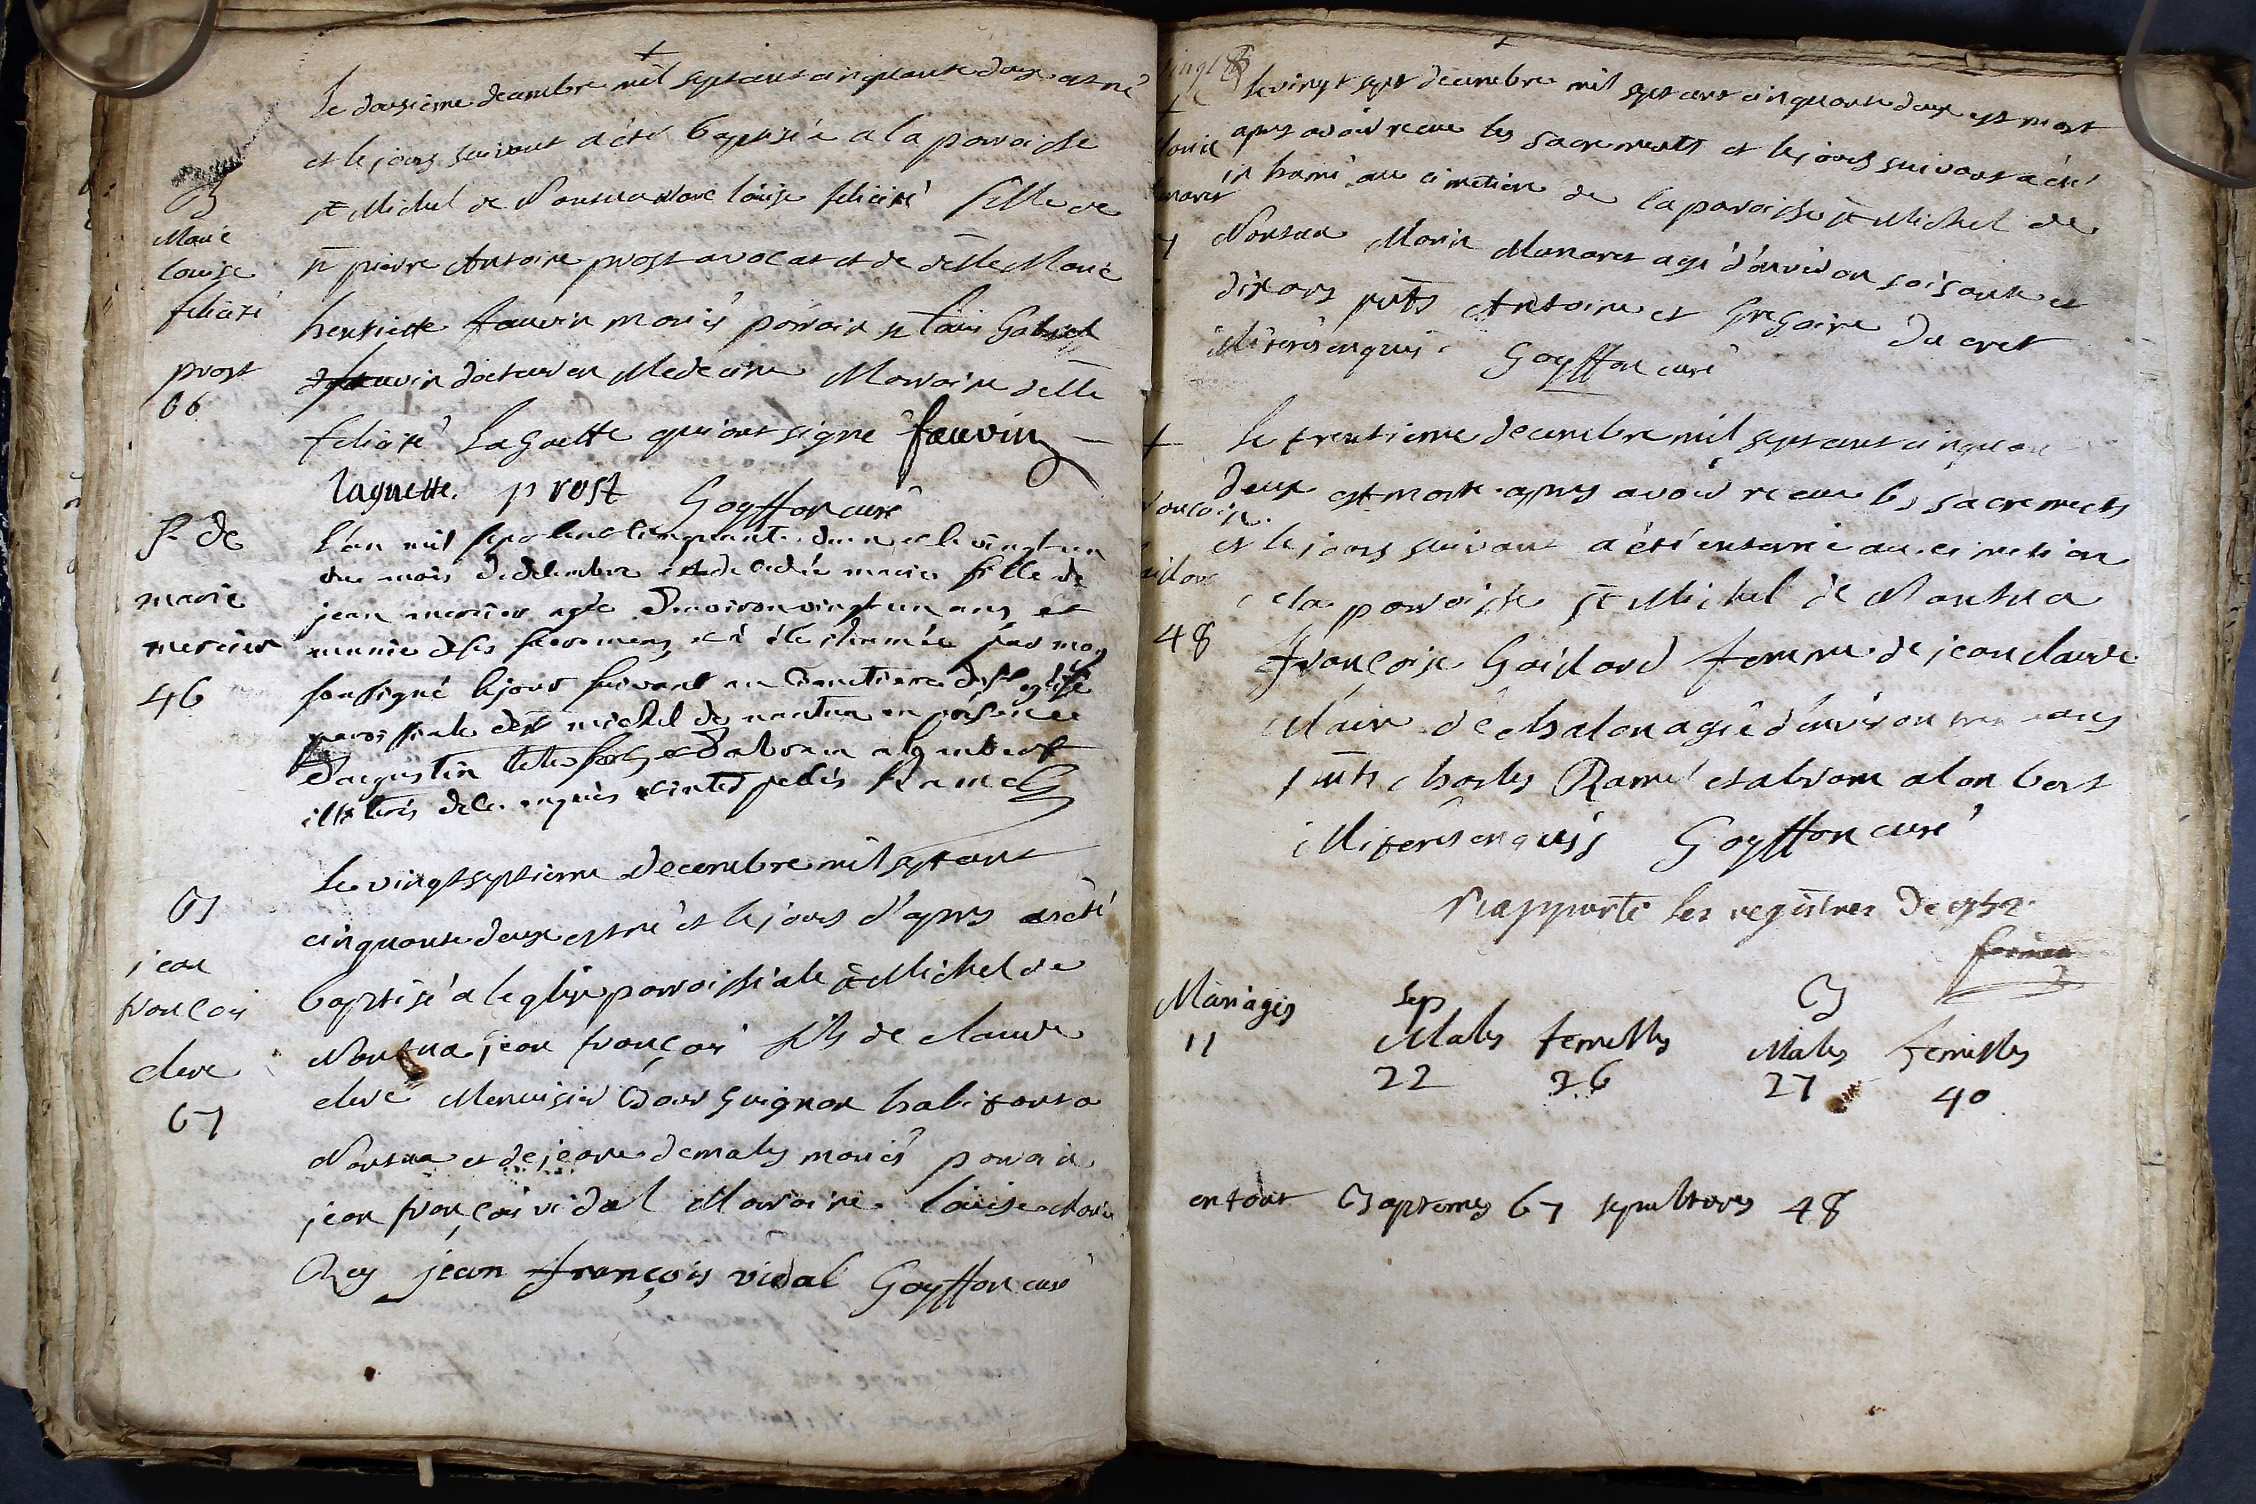 Le dousieme decembre mil septcent cinquante deux est né
et le jours suivant a été baptisée a la paroisse
st Michel de Nantua Marie louise felicité fille de
sr pierre Antoine prost avocat et de delle Marie
henriette fauvin mariés parrain sr louis Gabriel
fauvin docteur en Medecine Marraine delle
felicité laGuette qui ont signé fauvin
laguette. prost Goyffon curé
B
Marie
louise
felicité
prost
66
L'an mil sept cent cinquante deux et le vingt un
du mois de decembre est decedée marie fille de
jean mercier agée d'environ vingt un ans et
munie de ses sacremens et a été inhumée par moy
soussigné le jour suivant au cimetiere de l'eglise
paroissiale de st michel de nantua en présence
d'augustin et d'abram alombert
illiterés de ce enquis et interpellés Ramel
S. de
marie
mercier
46
Le vingtseptieme decembre mil septcent
cinquante deux est né et le jours d'apres a été
baptisé a leglise parroissiale st Michel de
Nantua jean françois fils de claude
cleve Menuisier Bourguignon habitant a
Nantua et de jeane demales mariés parrain
jean françois vidal Marraine louise Marie
Rey jean françois vidal Goyffon curé
B
jean
françois
cleve
67
Le vingt sept decembre mil sept cent cinquante deux est mort
apres avoir receu les sacrements et le jours suivant a été
inhumé au cimetiere de la paroisse st Michel de
Nantua Marin Manaret agé d'environ soisante et
dix ans pnts Antoine et Gregoire Ducret
illiterés enquis Goyffon curé
Le trentieme decembre mil septcent cinquante
deux est morte apres avoir receu les sacrements
et le jours suivant a été enterrée au cimetiere
de la paroisse st Michel de Nantua
françoise Gaillard femme de jean claude
Mair de chalon agée d'environ ans
pnts charles Ramel et abram alombert
illiterés enquis Goyffon curé
48
Rapporté les registres de 1752.
Mariages
11
Sep
Males femelles
22 26
B
Males femelles
27 40
en tout Baptemes 67 sepultures 48